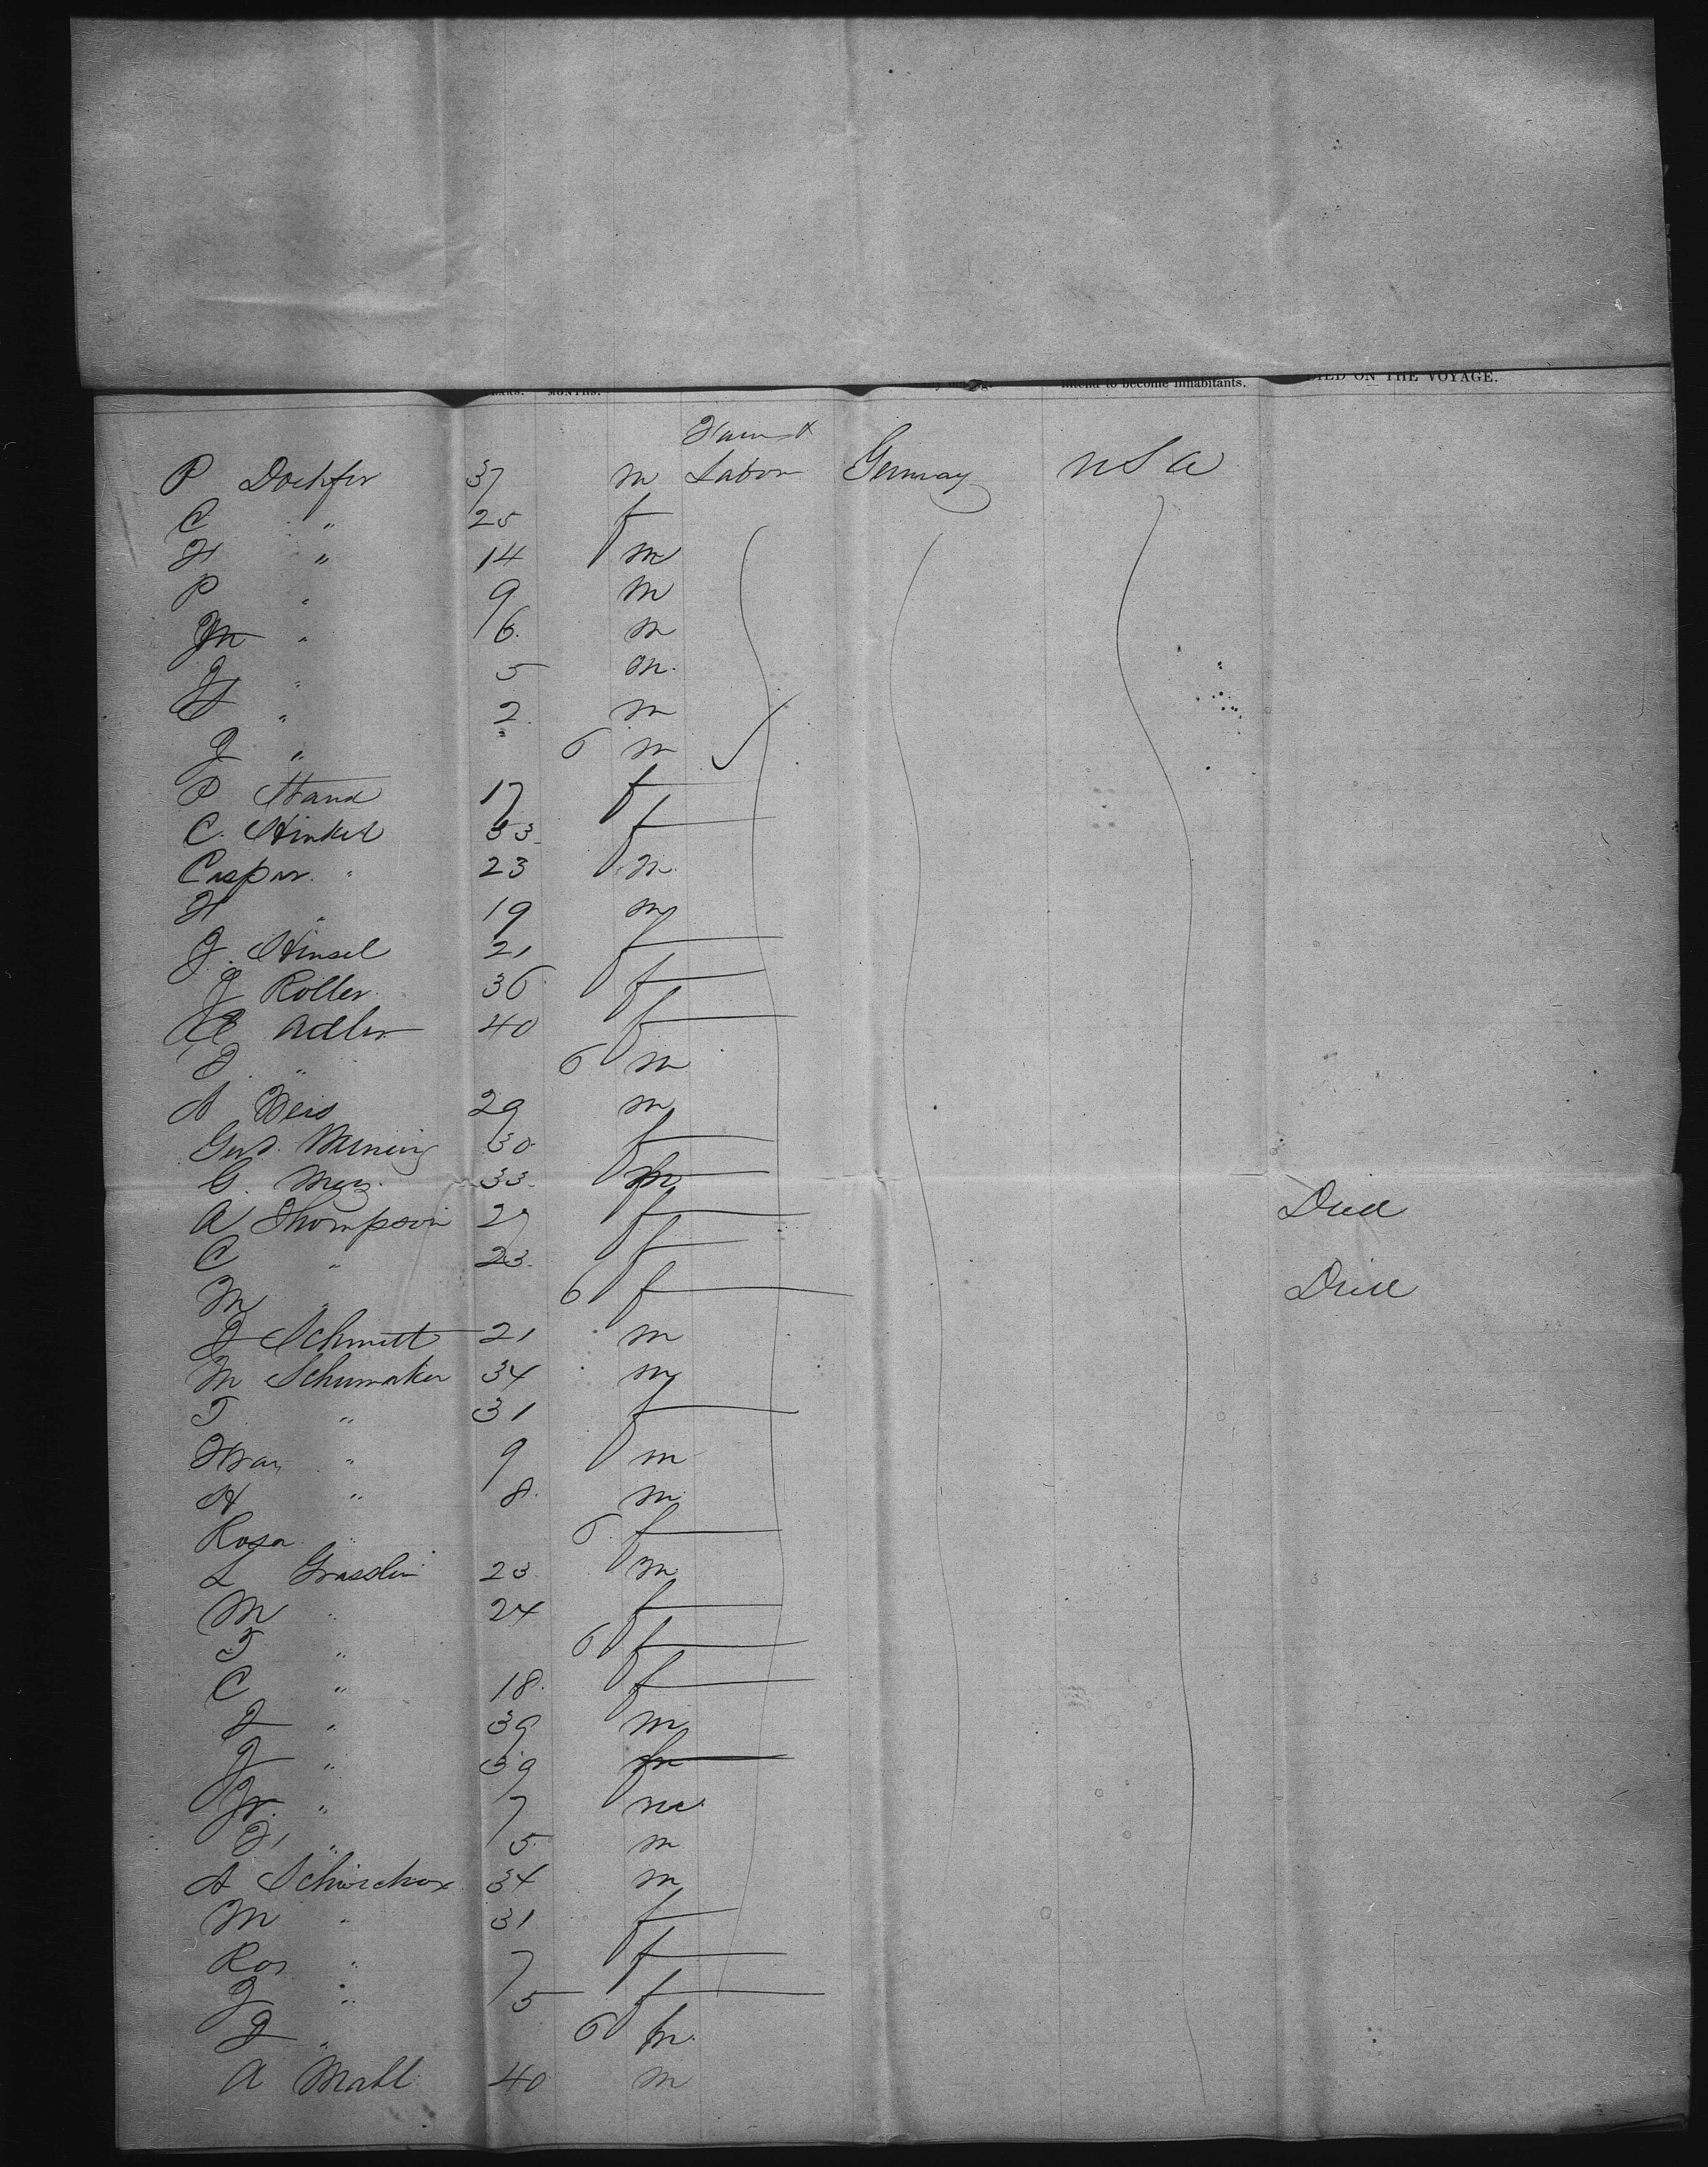 MONTHS. intend to become inhabitants. DIED ON THE VOYAGE.
Farm &
P Dochfer 37 m Labor Germany USA
C " 25 f
H " 14 m
P " 9 m
" 6 m
J " 5 m
H " 2 m
J " 6 m
P Hand 17 f
C. Hinkel 33 f
Caspar " 23 m
H " 19 m
J. Hinsel 21 f
J Roller 36 f
Adler 40 f
J " 6 m
A Weis 29 m
Gust. Mening 30 f
G. Merz 33
A Thompson 27 f Died
C " 23 f
M " 6 f Died
J Schmitt 21 m
M Schumaker 34 m
T " 31 f
Fran " 9 m
H " 8 m
Rosa " 6 f
L Grasslin 23 m
M " 24 f
T " 6 f
C " 18 f
J " 39 m
J " 39
Jr. " 7 m
F " 5 m
A 34 m
M " 31 f
Ros " 7 f
J " 5 f
J " 6 m
A Mall 40 m